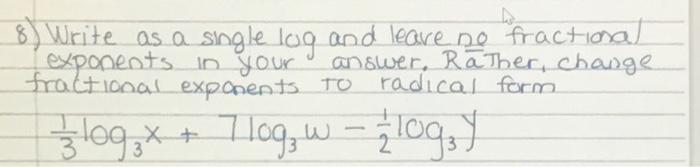 8) Write as a single log and leave no fractional
exponents in your answer. RaTher, change
fractional exponents TO radical form
1/3 log₃x + 7log₃w − 1/2 log₃y